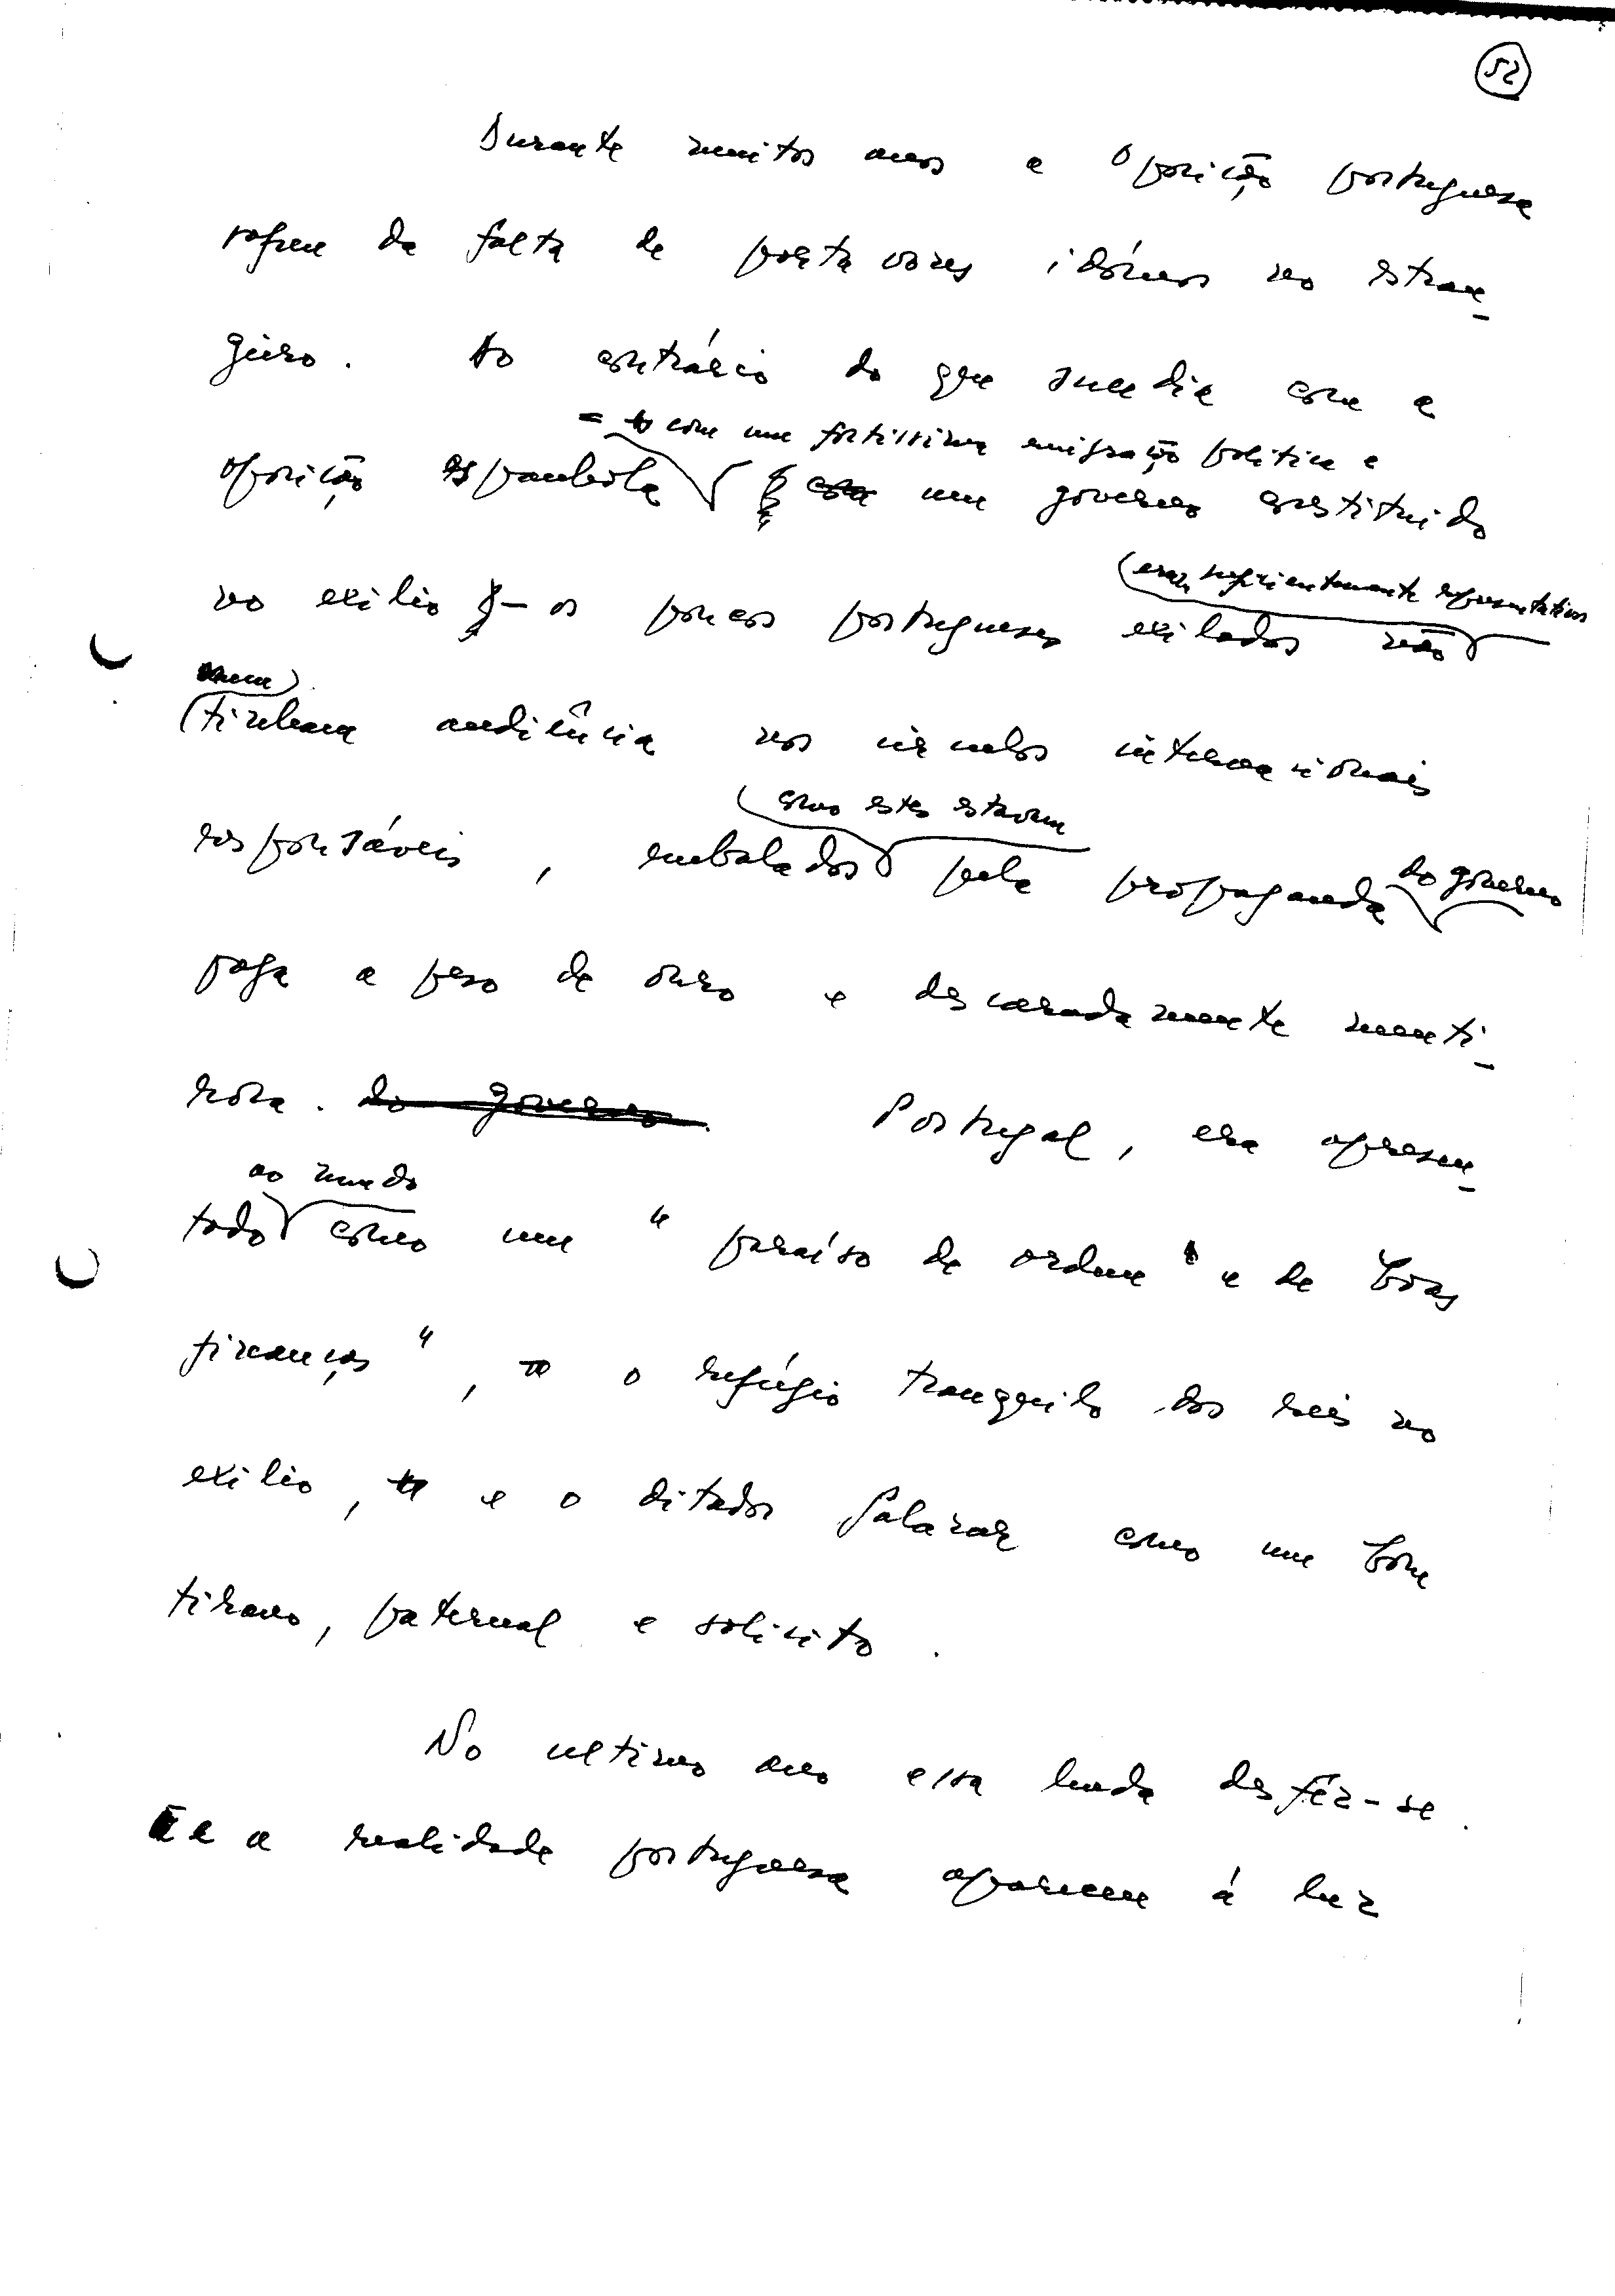 52
Durante muitos anos a Oposição portuguesa
sofreu da falta de porta vozes idóneos no estran-
geiro. Ao contrário do que sucedia com a
- com uma fortíssima emigração política e
oposição espanhola um governo constituido
no exílio - os poucos portugueses exilados não
eram suficientemente representativos
nem
tinham audiência nos círculos internacionais
como estes estavam
responsáveis, embalados pela propaganda do governo
paga a peso de ouro e descaradamente menti-
rosa. do governo. Portugal, era apresen-
ao mundo
tado como um "paraíso de ordem e de boas
finanças", o refúgio tranquilo dos reis no
exílio, e o ditador Salazar como um bom
tirano, paternal e solicito.
No ultimo ano essa lenda desfêz-se.
E a realidade portuguesa apareceu á luz